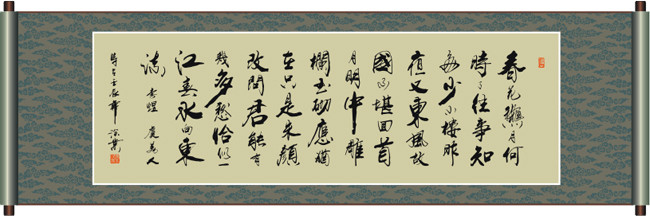 春花秋月何
時了往事知
多少小樓昨
夜又東風故
國不堪回首
月明中雕
欄玉砌應猶
在只是朱顏
改問君能有
幾多愁恰似一
江春水向東
流 李煜 虞美人